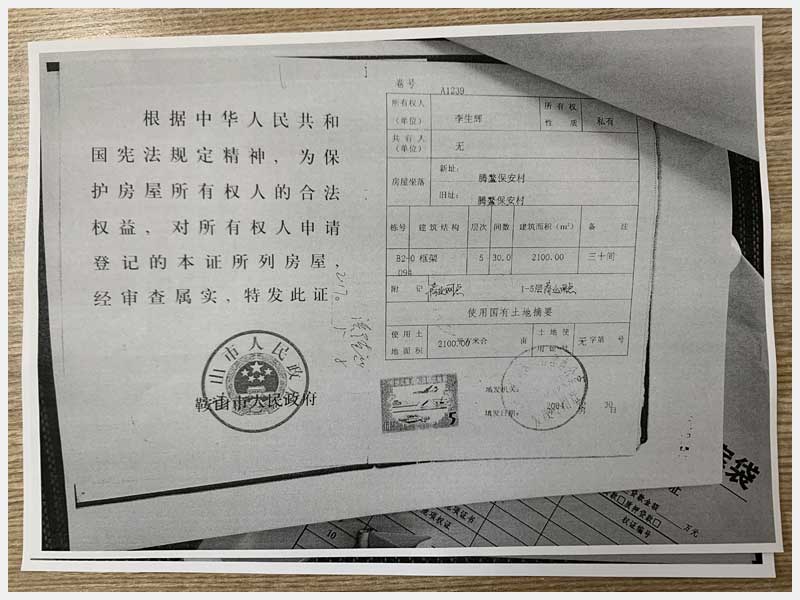 根据中华人民共和
国宪法规定精神，为保
护房屋所有权人的合法
权益，对所有权人申请
登记的本证所列房屋，
经审查属实，特发此证。
山市人民政
鞍山市人民政府
卷号 A1239
所有权人（单位） 李生辉 所有权性质 私有
共有人（单位） 无
房屋坐落 新址： 腾鳌保安村
旧址： 腾鳌保安村
栋号 建筑结构 层次 间数 建筑面积（m²） 备注
B2-0 框架 5 30.0 2100.00 三十间
094
附记 1-5层
使用国有土地摘要
使用土地面积 2100.00 平方米合 亩 土地使用证号 无 字第 号
5
填发机关：
填发日期： 2004 30日
袋
贷款金额
押贷款
万元
权证编号
10